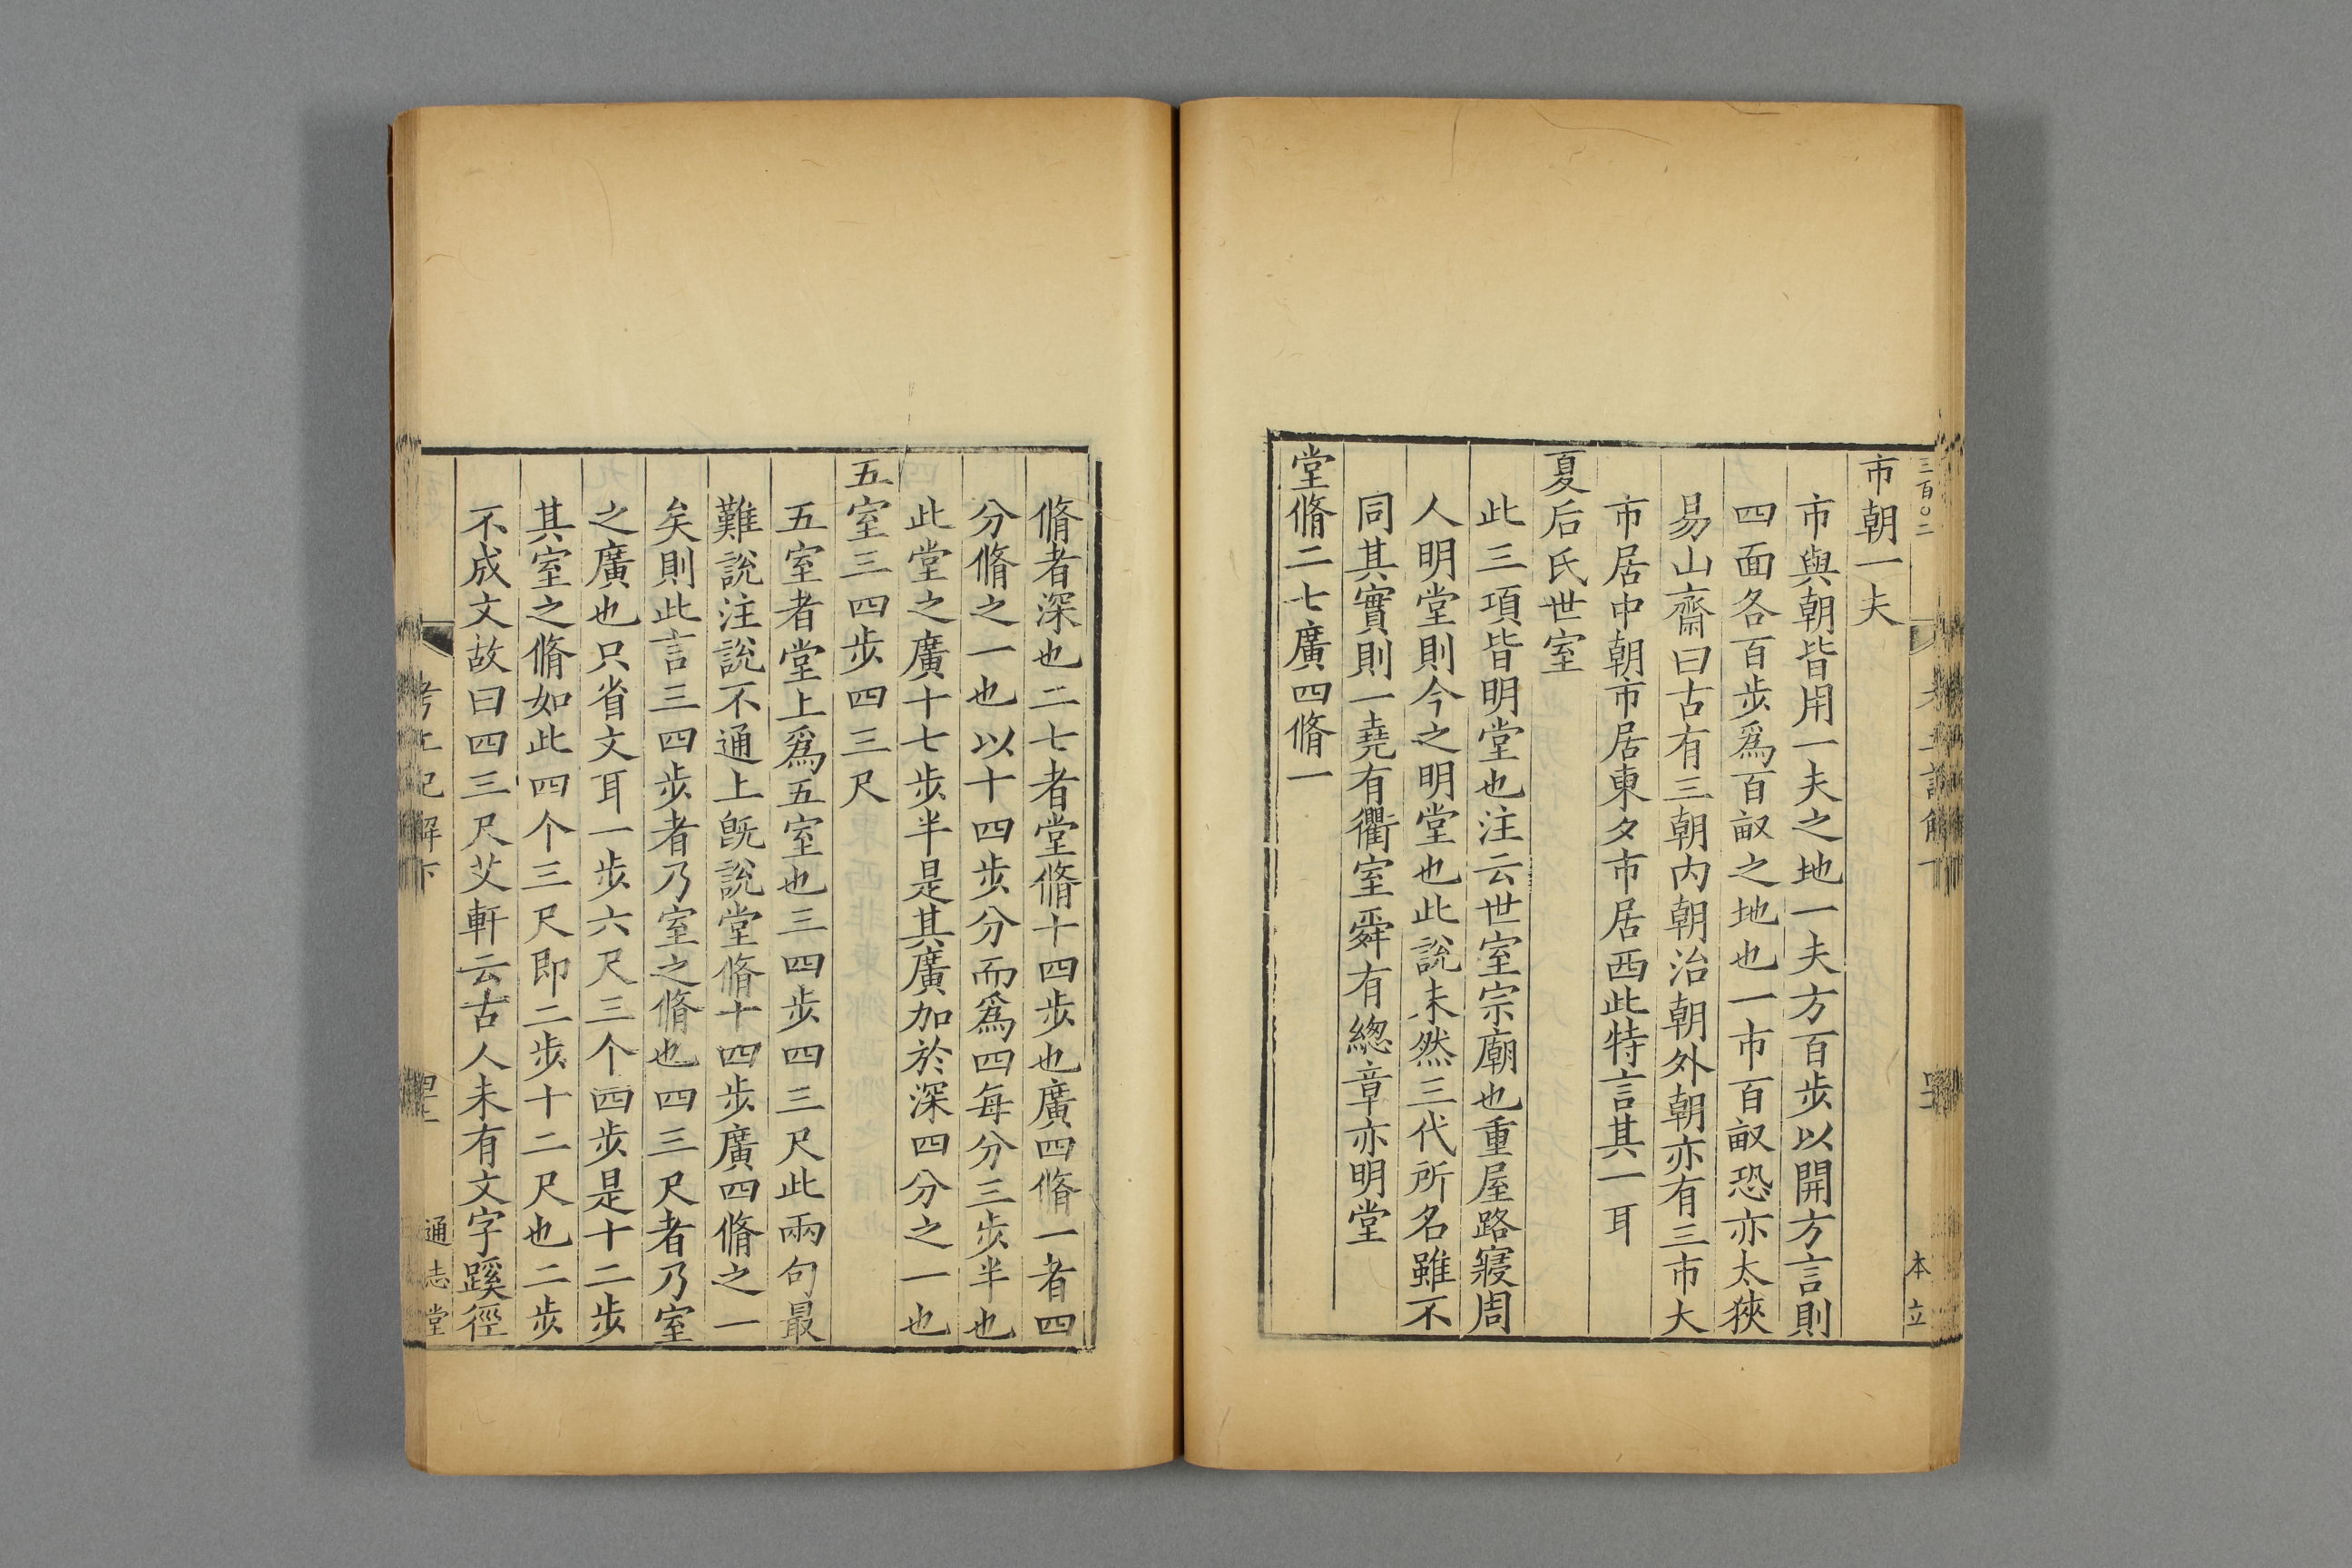 三百〇二
本立
市朝一夫
市與朝皆用一夫之地一夫方百步以開方言則
四面各百步爲百畝之地也一市百畝恐亦太狹
易山齋曰古有三朝内朝治朝外朝亦有三市大
市居中朝市居東夕市居西此特言其一耳
夏后氏世室
此三項皆明堂也注云世室宗廟也重屋路寢周
人明堂則今之明堂也此說未然三代所名雖不
同其實則一堯有衢室舜有總章亦明堂
堂脩二七廣四脩一
脩者深也二七者堂脩十四步也廣四脩一者四
分脩之一也以十四步分而爲四每分三步半也
此堂之廣十七步半是其廣加於深四分之一也
五室三四步四三尺
五室者堂上爲五室也三四步四三尺此兩句最
難說注說不通上旣說堂脩十四步廣四脩之一
矣則此言三四步者乃室之脩也四三尺者乃室
之廣也只省文耳一步六尺三个四步是十二步
其室之脩如此四个三尺即二步十二尺也二步
不成文故曰四三尺艾軒云古人未有文字蹊徑
考工記解下
通志堂